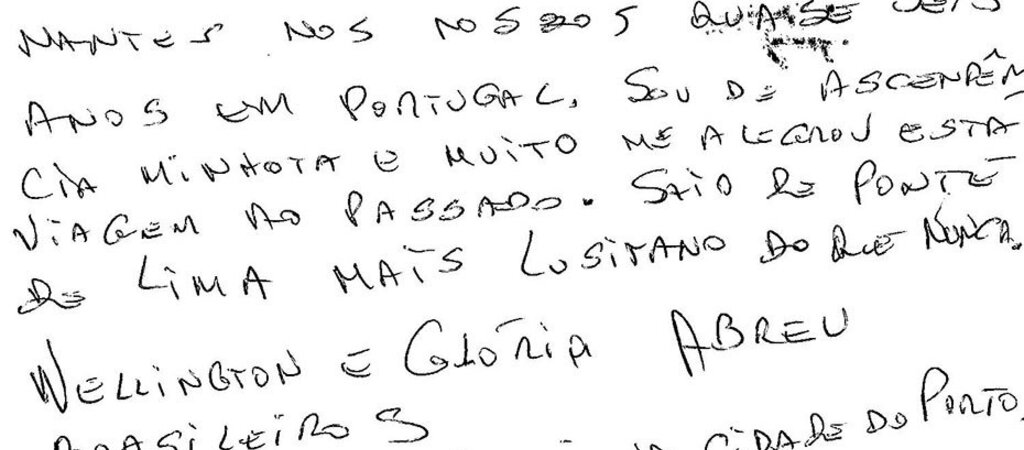 NANTES NOS NOSSOS QUASE SEIS
ANOS EM PORTUGAL. SOU DE ASCENDÊN
CIA MINHOTA E MUITO ME ALEGROU ESTÁ
VIAGEM AO PASSADO. SAIO DE PONTE
DE LIMA MAIS LUSITANO DO QUE NUNCA.
WELLINGTON E GLÓRIA ABREU
BRASILEIROS CIDADE DO PORTO.